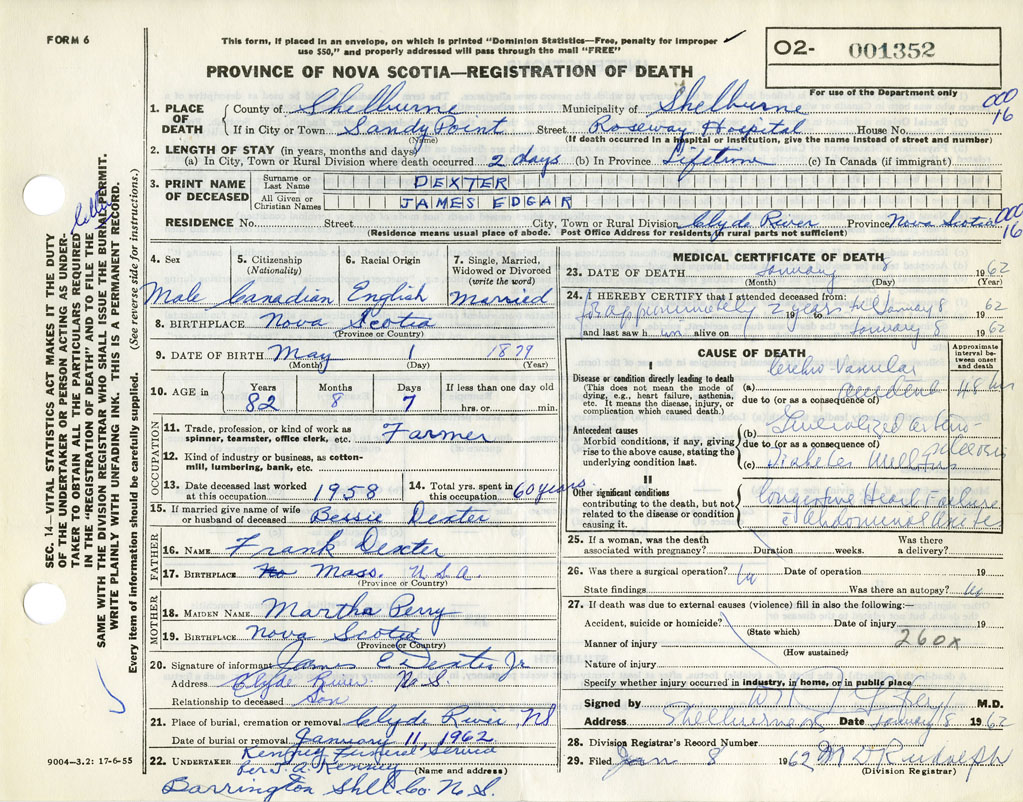 FORM 6
This form, if placed in an envelope, on which is printed "Dominion Statistics—Free, penalty for improper
use $50," and properly addressed will pass through the mail "FREE"
02- 001352
For use of the Department only
PROVINCE OF NOVA SCOTIA—REGISTRATION OF DEATH
000
16
1. PLACE OF DEATH
County of Shelburne Municipality of Shelburne
If in City or Town Sandy Point Street Roseway Hospital House No.
(Name) (If death occurred in a hospital or institution, give the name instead of street and number)
2. LENGTH OF STAY (in years, months and days)
(a) In City, Town or Rural Division where death occurred 2 days (b) In Province Lifetime (c) In Canada (if immigrant)
3. PRINT NAME OF DECEASED
Surname or Last Name DEXTER
All Given or Christian Names JAMES EDGAR
RESIDENCE No. Street City, Town or Rural Division Clyde River Province Nova Scotia
000
16
(Residence means usual place of abode. Post Office Address for residents in rural parts not sufficient)
4. Sex
Male
5. Citizenship
(Nationality)
Canadian
6. Racial Origin
English
7. Single, Married,
Widowed or Divorced
(write the word)
Married
8. BIRTHPLACE Nova Scotia
(Province or Country)
9. DATE OF BIRTH May 1 1879
(Month) (Day) (Year)
10. AGE in
Years Months Days If less than one day old
82 8 7 hrs. or min.
OCCUPATION
11. Trade, profession, or kind of work as
spinner, teamster, office clerk, etc. Farmer
12. Kind of industry or business, as cotton-
mill, lumbering, bank, etc.
13. Date deceased last worked
at this occupation 1958
14. Total yrs. spent in
this occupation 60 years
15. If married give name of wife
or husband of deceased Bessie Dexter
FATHER
16. NAME Frank Dexter
17. BIRTHPLACE Mass. U.S.A.
(Province or Country)
MOTHER
18. MAIDEN NAME Martha Perry
19. BIRTHPLACE Nova Scotia
(Province or Country)
20. Signature of informant James E Dexter Jr
Address Clyde River N.S.
Relationship to deceased Son
21. Place of burial, cremation or removal Clyde River NS
Date of burial or removal January 11, 1962
22. UNDERTAKER Funeral Service
per J. A. Kenney
(Name and address)
Barrington Shel. Co. N.S.
MEDICAL CERTIFICATE OF DEATH
23. DATE OF DEATH January 8 1962
(Month) (Day) (Year)
24. I HEREBY CERTIFY that I attended deceased from:
approximately 2 years 19 to January 8 1962
and last saw him alive on January 8 1962
CAUSE OF DEATH
Approximate
interval be-
tween onset
and death
I
Disease or condition directly leading to death
(This does not mean the mode of
dying, e.g., heart failure, asthenia,
etc. It means the disease, injury, or
complication which caused death.)
(a) Cerebro-Vascular
accident 48 hrs
due to (or as a consequence of)
Antecedent causes
Morbid conditions, if any, giving
rise to the above cause, stating the
underlying condition last.
(b) Generalized arterio-
sclerosis
due to (or as a consequence of)
(c) Diabetes Mellitus
II
Other significant conditions
contributing to the death, but not
related to the disease or condition
causing it.
Congestive Heart Failure
c Abdominal
25. If a woman, was the death
associated with pregnancy? Duration weeks. Was there
a delivery?
26. Was there a surgical operation? No Date of operation 19
State findings Was there an autopsy? No
27. If death was due to external causes (violence) fill in also the following:—
Accident, suicide or homicide? Date of injury 19
(State which)
Manner of injury 260x
(How sustained)
Nature of injury
Specify whether injury occurred in industry, in home, or in public place
Signed by M.D.
Address Shelburne NS Date January 8 1962
28. Division Registrar's Record Number
29. Filed Jan 8 1962 M D Rudolph
(Division Registrar)
SEC. 14—VITAL STATISTICS ACT MAKES IT THE DUTY
OF THE UNDERTAKER OR PERSON ACTING AS UNDER-
TAKER TO OBTAIN ALL THE PARTICULARS REQUIRED
IN THE "REGISTRATION OF DEATH" AND TO FILE THE
SAME WITH THE DIVISION REGISTRAR WHO SHALL ISSUE THE BURIAL PERMIT.
WRITE PLAINLY WITH UNFADING INK. THIS IS A PERMANENT RECORD.
Every item of information should be carefully supplied. (See reverse side for instructions.)
9004—3.2: 17-6-55